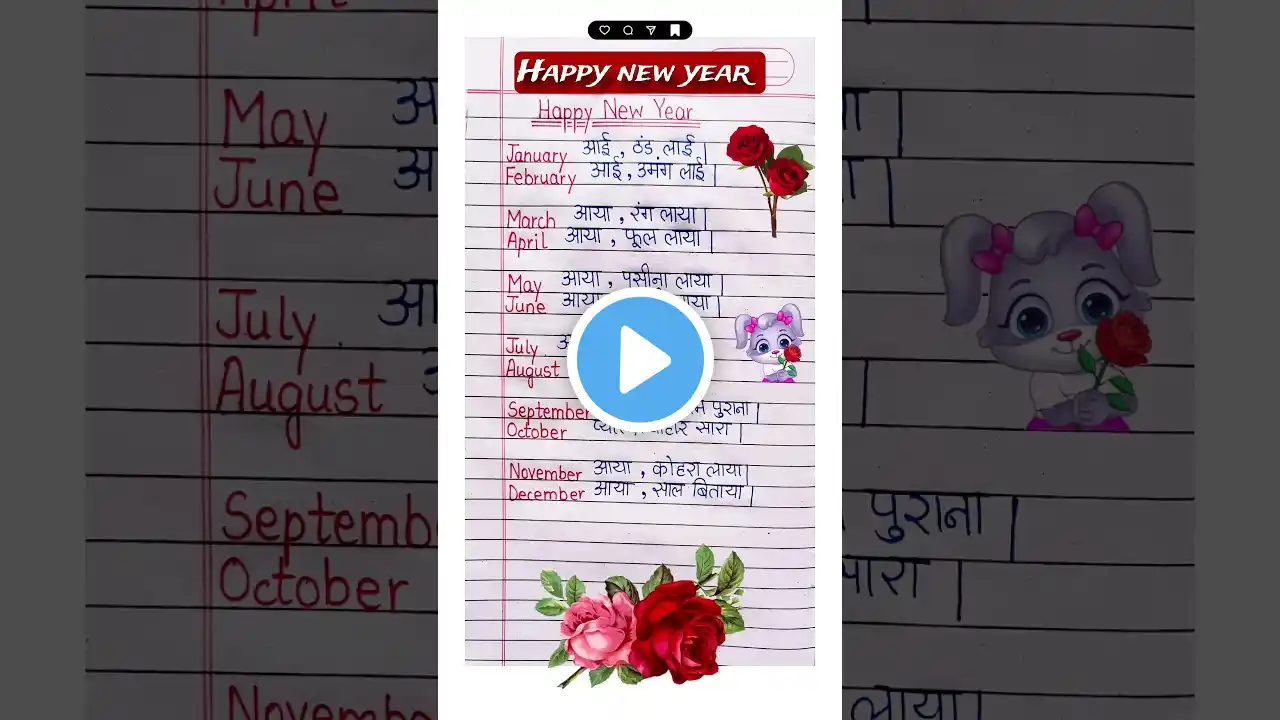 HAPPY NEW YEAR
Happy New Year
January आई , ठंड लाई |
February आई , उमंग लाई |
March आया , रंग लाया |
April आया , फूल लाया |
May आया , पसीना लाया |
June आया
July
August
September पुराना |
October सारा |
November आया , कोहरा लाया|
December आया , साल बिताया |